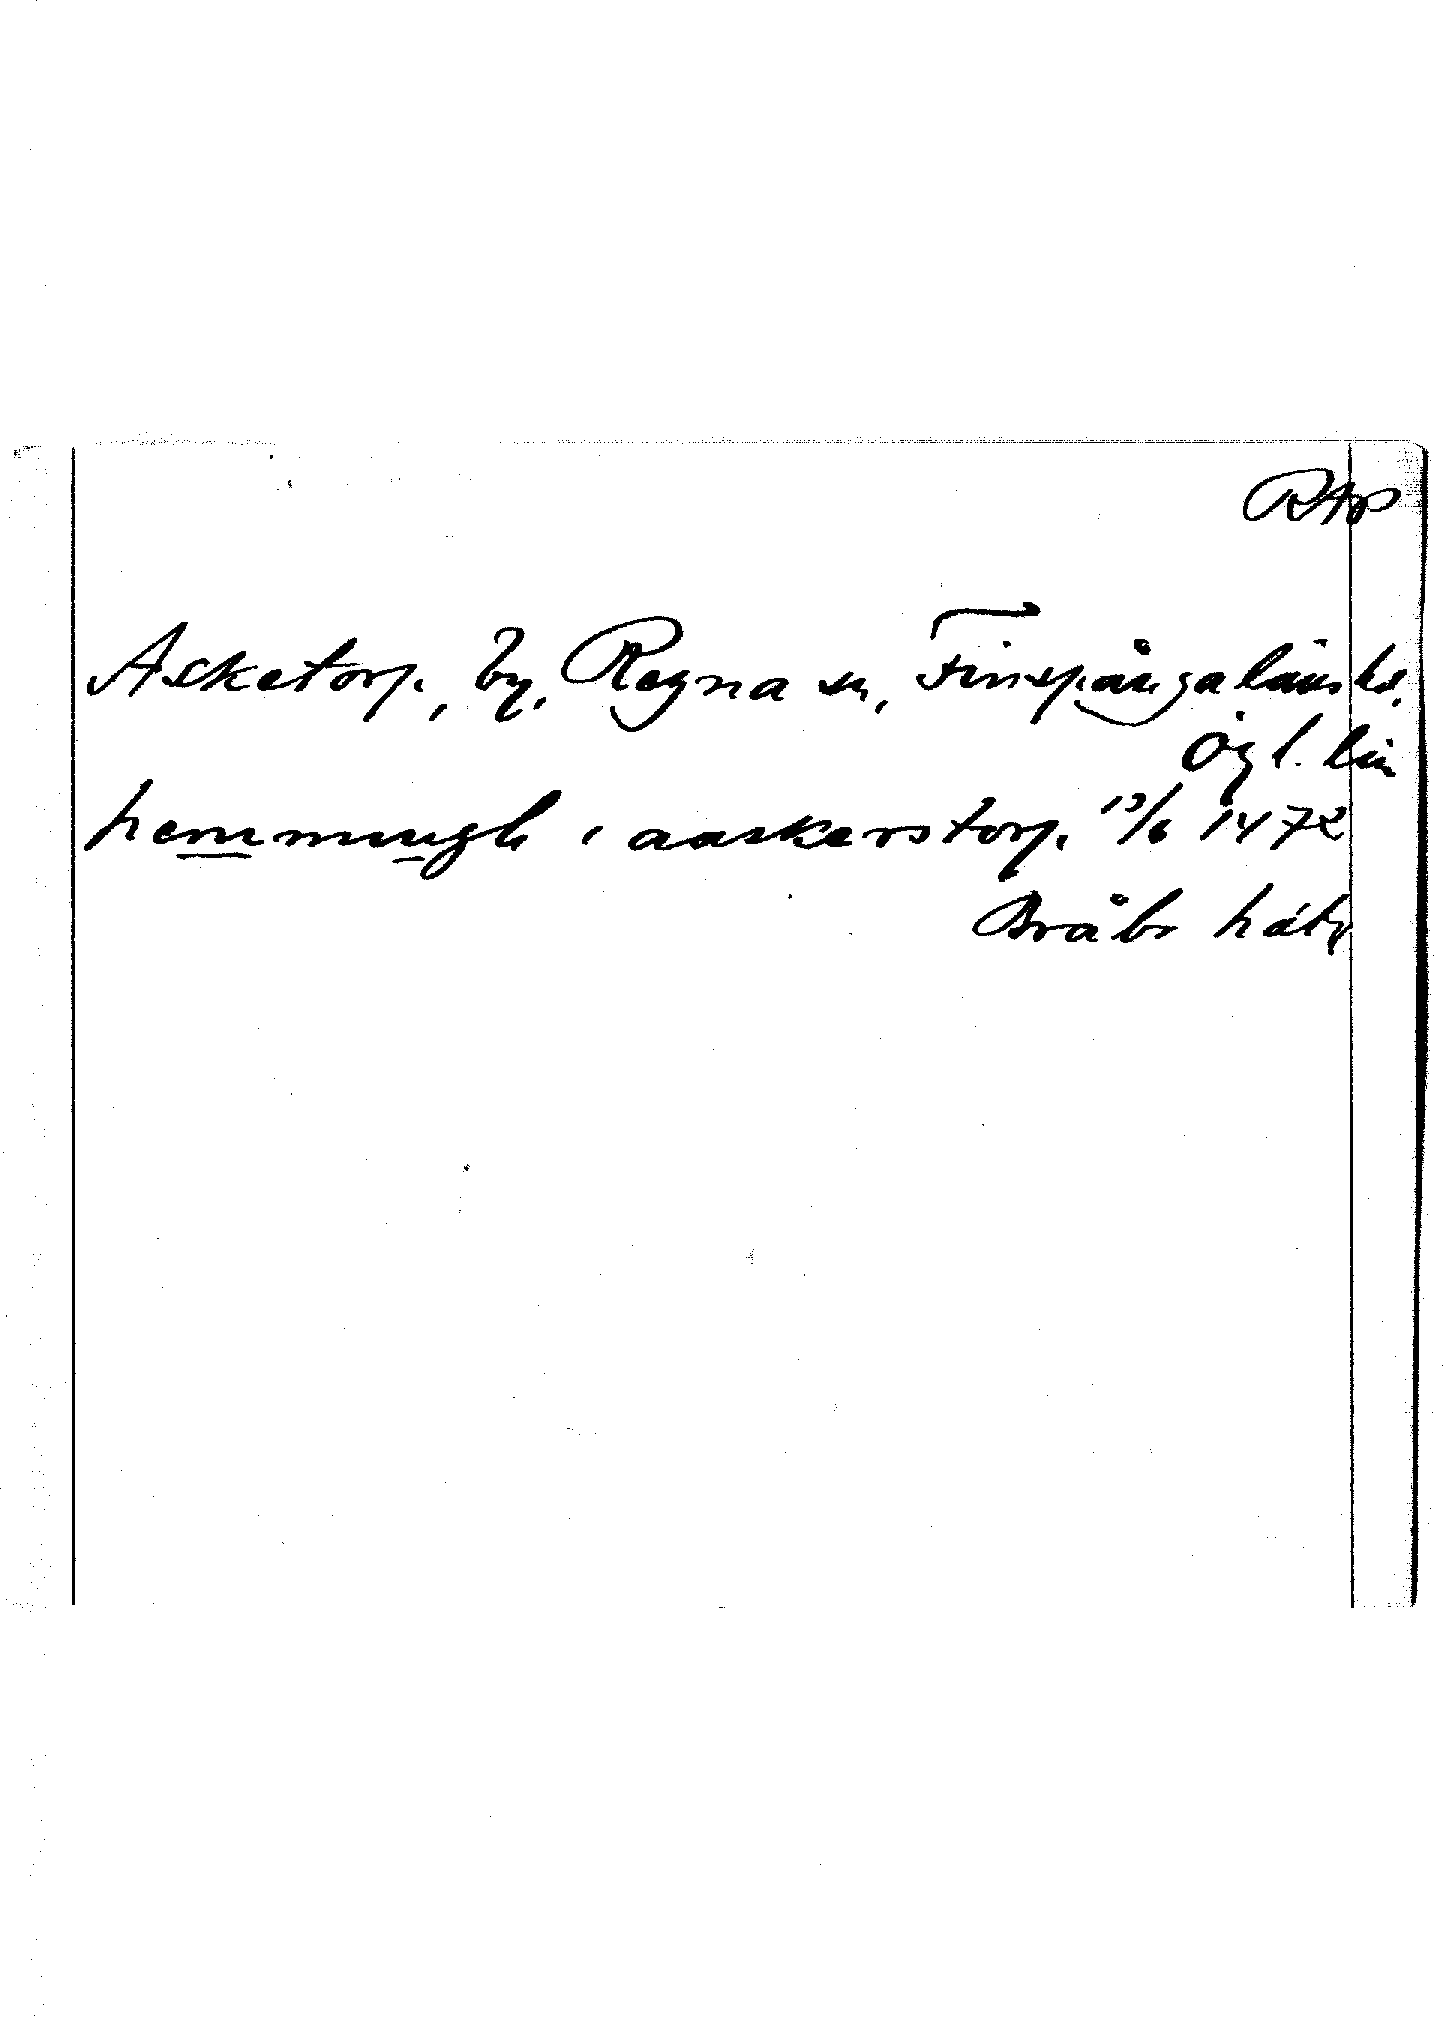 RAp
Asketorp, by, Regna sn, Finspångaläns hd,
Ögl. län
hemmingh i aaskerstorp. 13/6 1472
Bråbo häfte